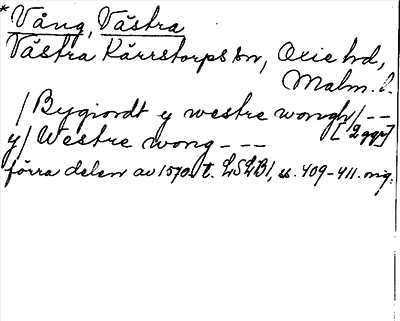 * Vång, Västra
Västra Kärrstorps sn, Oxie hd,
Malm. l.
/Bygiordt y westre wongh/ --
[2 ggr]
y/ Westre wong - - -
förra delen av 1570-t. LSLB1, ss. 409-411. mg.